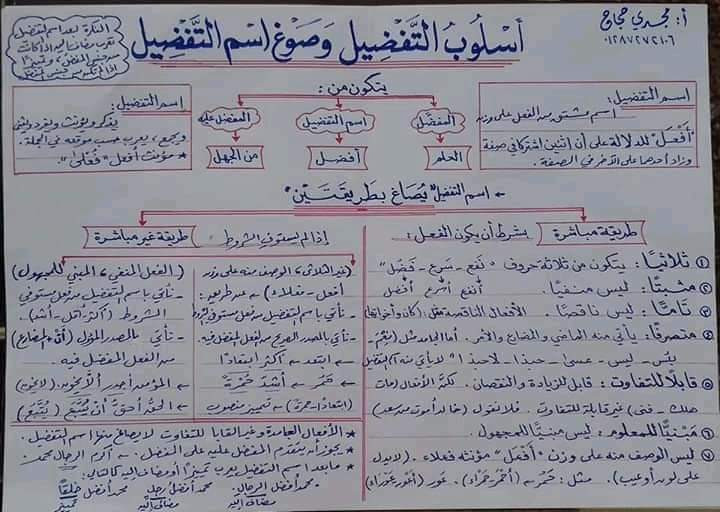 أ: مجدي حجاج
٠١٢٨٧٢٧٢١٠٦
أسلوب التفضيل وصوغ اسم التفضيل
النكرة بعد اسم التفضيل
تعرب مضافًا إليه إذا كانت
من جنس المفضل، وتمييزًا
إذا لم تكن من جنس المفضل
يتكون من :
اسم التفضيل :
اسم مشتق من الفعل على وزن
"أفعل" للدلالة على أن اثنين اشتركا في صفة
وزاد أحدهما على الآخر في الصفة.
المفضَّل
اسم التفضيل
المفضل عليه
العلم
أفضل
من الجهل
اسم التفضيل :
يذكر ويؤنث ويفرد ويثنى
ويجمع، يعرب حسب موقعه في الجملة.
* مؤنث أفعل "فُعْلى".
← اسم التفضيل "يُصَاغ بطريقتين"
طريقة مباشرة
بشرط أن يكون الفعل :
١ ثلاثيًّا : يتكون من ثلاثة حروف "نفع - سرع - فضل"
أنفع أسرع أفضل
٢ مثبتًا : ليس منفيًّا.
٣ تامًّا : ليس ناقصًا. الأفعال الناقصة مثل : (كان وأخواتها)
٤ متصرفًا : يأتي منه الماضي والمضارع والأمر. أما الجامد مثل (نِعْمَ -
بئس - ليس - عسى - حبذا - لا حبذا) "لا يأتي منه اسم التفضيل
٥ قابلًا للتفاوت : قابل للزيادة والنقصان. لكن الأفعال (مات
هلك - فنى) غير قابلة للتفاوت. فلا نقول (خالد أموت من سعد)
٦ مَبْنيًّا للمعلوم : ليس مبنيًّا للمجهول.
٧ ليس الوصف منه على وزن "أَفْعَل" مؤنثه فعلاء. (لا يدل
على لون أو عيب). مثل : حَمُرَ ← (أحمر حمراء). عور (أعور عوراء)
إذا لم يستوفِ الشروط
طريقة غير مباشرة
(غير الثلاثي، الوصف منه على وزن
أفعل - فعلاء) ← عن طريق :
- نأتي باسم التفضيل من فعل مستوفي الشروط
- نأتي بالمصدر الصريح من الفعل المفضل فيه.
← ابتعد ← أكثر ابتعادًا
← حَمُرَ ← أشدّ حُمْرَةً
(ابتعادًا - حمرة) ← تمييز منصوب
(الفعل المنفي، المبني للمجهول)
- نأتي باسم التفضيل من فعل مستوفي
الشروط (أكثر - أقل - أشد).
- نأتي بالمصدر المؤول (أنْ + المضارع)
من الفعل المفضل فيه.
← المؤمن أجدر ألا يخون. (لا يخون)
← الحق أحقّ أنْ يُتَّبَع (يُتَّبَع)
* الأفعال الجامدة وغير القابلة للتفاوت لا يصاغ منها اسم التفضيل.
* يجوز أن يتقدم المفضل عليه على المفضل. ← أكرم الرجال محمد.
* ما بعد اسم التفضيل يعرب تمييزًا أو مضافًا إليه كالتالي :
محمد أفضل الرجال.
مضاف إليه
محمد أفضل رجل
مضاف إليه
محمد أفضل خلقًا
تمييز